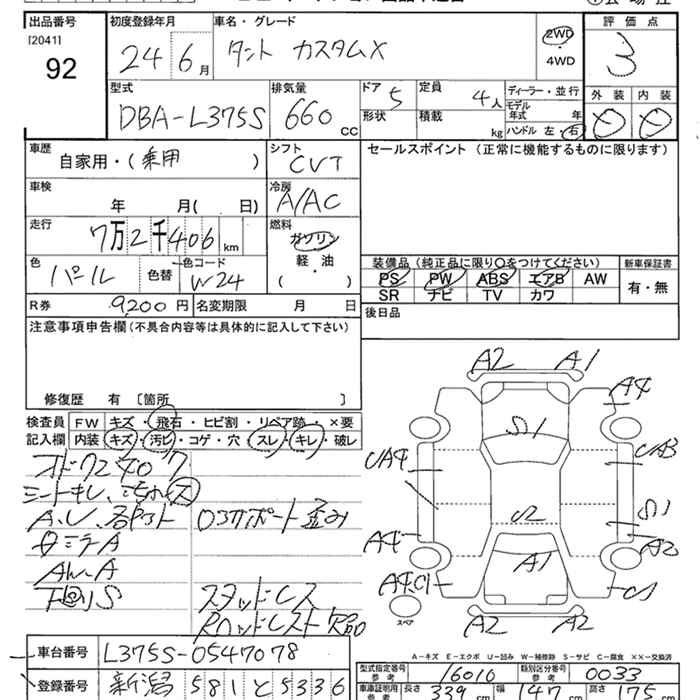 出品番号 初度登録年月 車名・グレード 評価点
[2041] 92
24年6月 タント カスタムX 2WD・4WD 3
型式 排気量 ドア 定員 ディーラー・並行 外装 内装
DBA-L375S 660cc 5 4人 モデル年式 年
形状 積載 kg ハンドル 左・右
車歴 シフト セールスポイント(正常に機能するものに限ります)
自家用・(乗用) CVT
車検 冷房
年 月( 日) A/AC
走行 燃料
7万2千406km ガソリン
軽・油
( ・ )
色 色替 色コード 装備品(純正品に限り○をつけてください) 新車保証書
パール W24 PS PW ABS エアB AW 有・無
SR ナビ TV カワ
R券 9,200円 名変期限 月 日 後日品
注意事項申告欄(不具合内容等は具体的に記入して下さい)
修復歴 有 〔箇所 〕
検査員記入欄 FW キズ・飛石・ヒビ割・リペア跡・×要
内装 キズ・汚ヒ・コゲ・穴・スレ・キレ・破レ
A2 A1
A4
S1
UA4 UA3
U2 S1
A4 A2
A1
A4C1 C1
スペア A2 A2
スタッドレス
A-キズ E-エクボ U-凹み W-補修跡 S-サビ C-腐食 ××-交換済
車台番号 L375S-0547078
型式指定番号 参考 16010 類別区分番号 参考 0033
登録番号 新潟 581 と 5336
車庫証明用 参考 長さ 339cm 幅 147 175